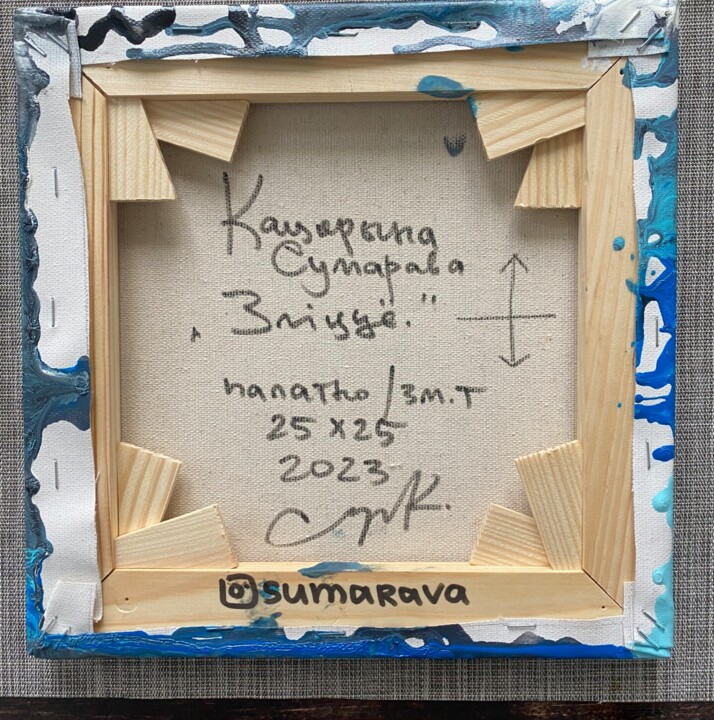 Кацярына
Сумарава
„Зліццё."
палатно/зм.т
25x25
2023
@sumaRava